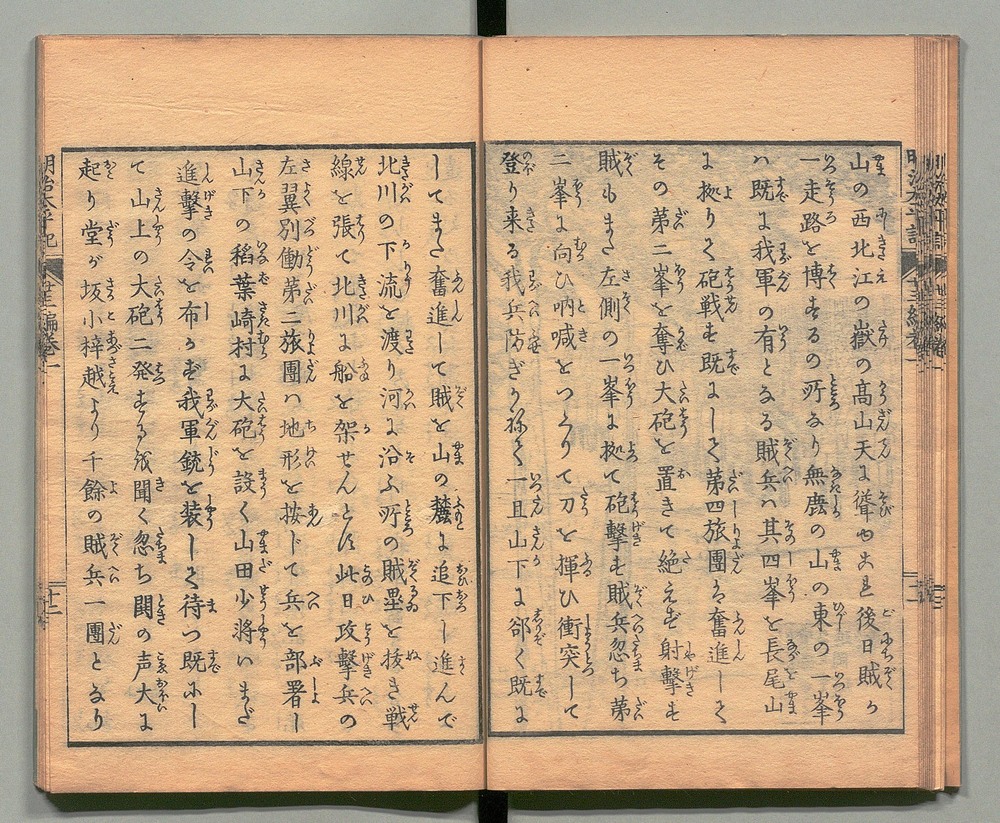 山の西北江の嶽の髙山天に聳ゆ
後日賊が
一走路を博するの所なり無鹿の山の東の一峯
ハ既に我軍の有となる賊兵ハ其四峯を長尾山
に拠りて砲戦す既にして第四旅團は奮進して
その第二峯を奪ひ大砲を置きて絶えず射撃す
賊もまた左側の一峯に拠て砲撃す賊兵忽ち第
二峯に向ひ吶喊をつくりて刀を揮ひ衝突して
登り来る我兵防ぎかねて一旦山下に郤く既に
してまた奮進して賊を山の麓に追下し進んで
北川の下流を渡り河に沿ふ所の賊塁を抜き戦
線を張て北川に船を架せんとす此日攻撃兵の
左翼別働第二旅團ハ地形を按じて兵を部署し
山下の稻葉崎村に大砲を設く山田少将いまだ
進撃の令を布かず我軍銃を装して待つ既にし
て山上の大砲二発するを聞く忽ち閧の声大に
起り堂が坂小梓越より千餘の賊兵一團となり
明治太平記
編巻一
十二